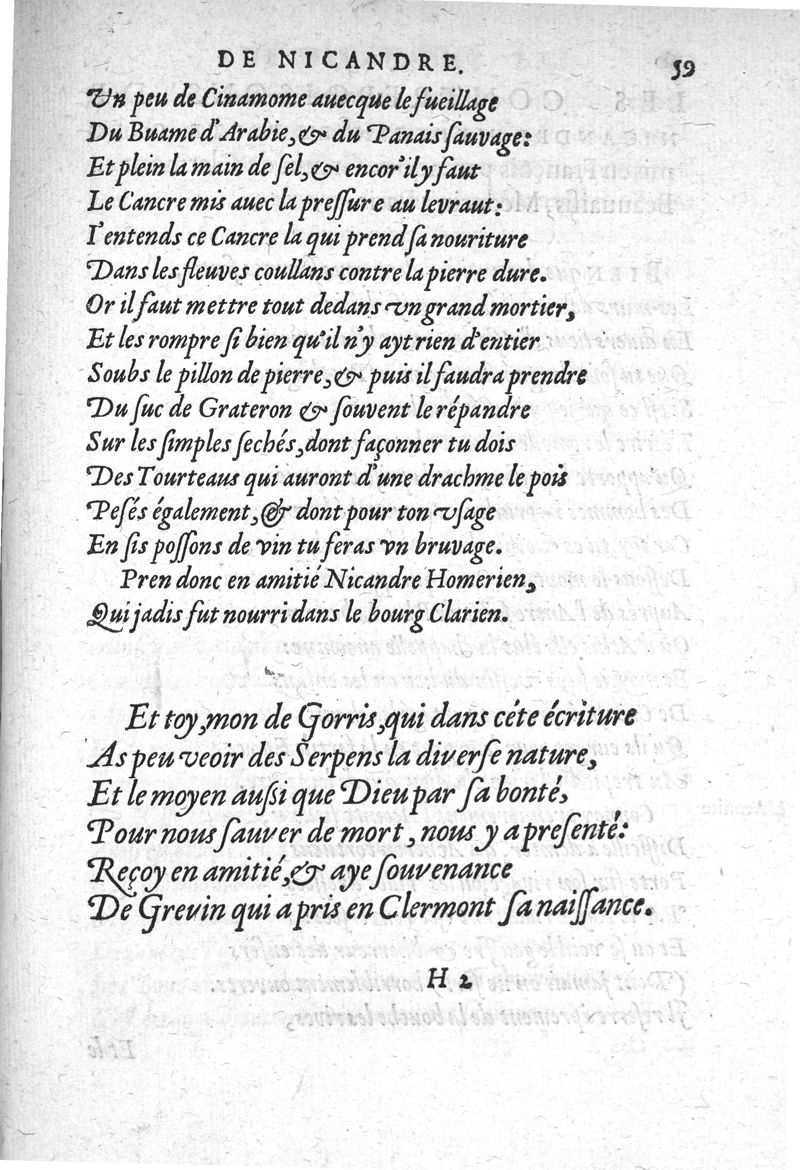 DE NICANDRE. 59
Vn peu de Cinamome auecque le fueillage
Du Buame d'Arabie, & du Panais ſauvage:
Et plein la main de ſel, & encor' il y faut
Le Cancre mis auec la preſſure au levraut:
I'entends ce Cancre la qui prend ſa nouriture
Dans les fleuves coullans contre la pierre dure.
Or il faut mettre tout dedans vn grand mortier,
Et les rompre ſi bien qu'il n'y ayt rien d'entier
Soubs le pillon de pierre, & puis il faudra prendre
Du ſuc de Grateron & ſouvent le répandre
Sur les ſimples ſechés, dont façonner tu dois
Des Tourteaus qui auront d'une drachme le pois
Peſés également, & dont pour ton vſage
En ſis poſſons de vin tu feras vn bruvage.
Pren donc en amitié Nicandre Homerien,
Qui jadis fut nourri dans le bourg Clarien.
Et toy, mon de Gorris, qui dans céte écriture
As peu veoir des Serpens la diverſe nature,
Et le moyen auſsi que Dieu par ſa bonté,
Pour nous ſauver de mort, nous y a preſenté:
Reçoy en amitié, & aye ſouvenance
De Grevin qui a pris en Clermont ſa naiſſance.
H 2